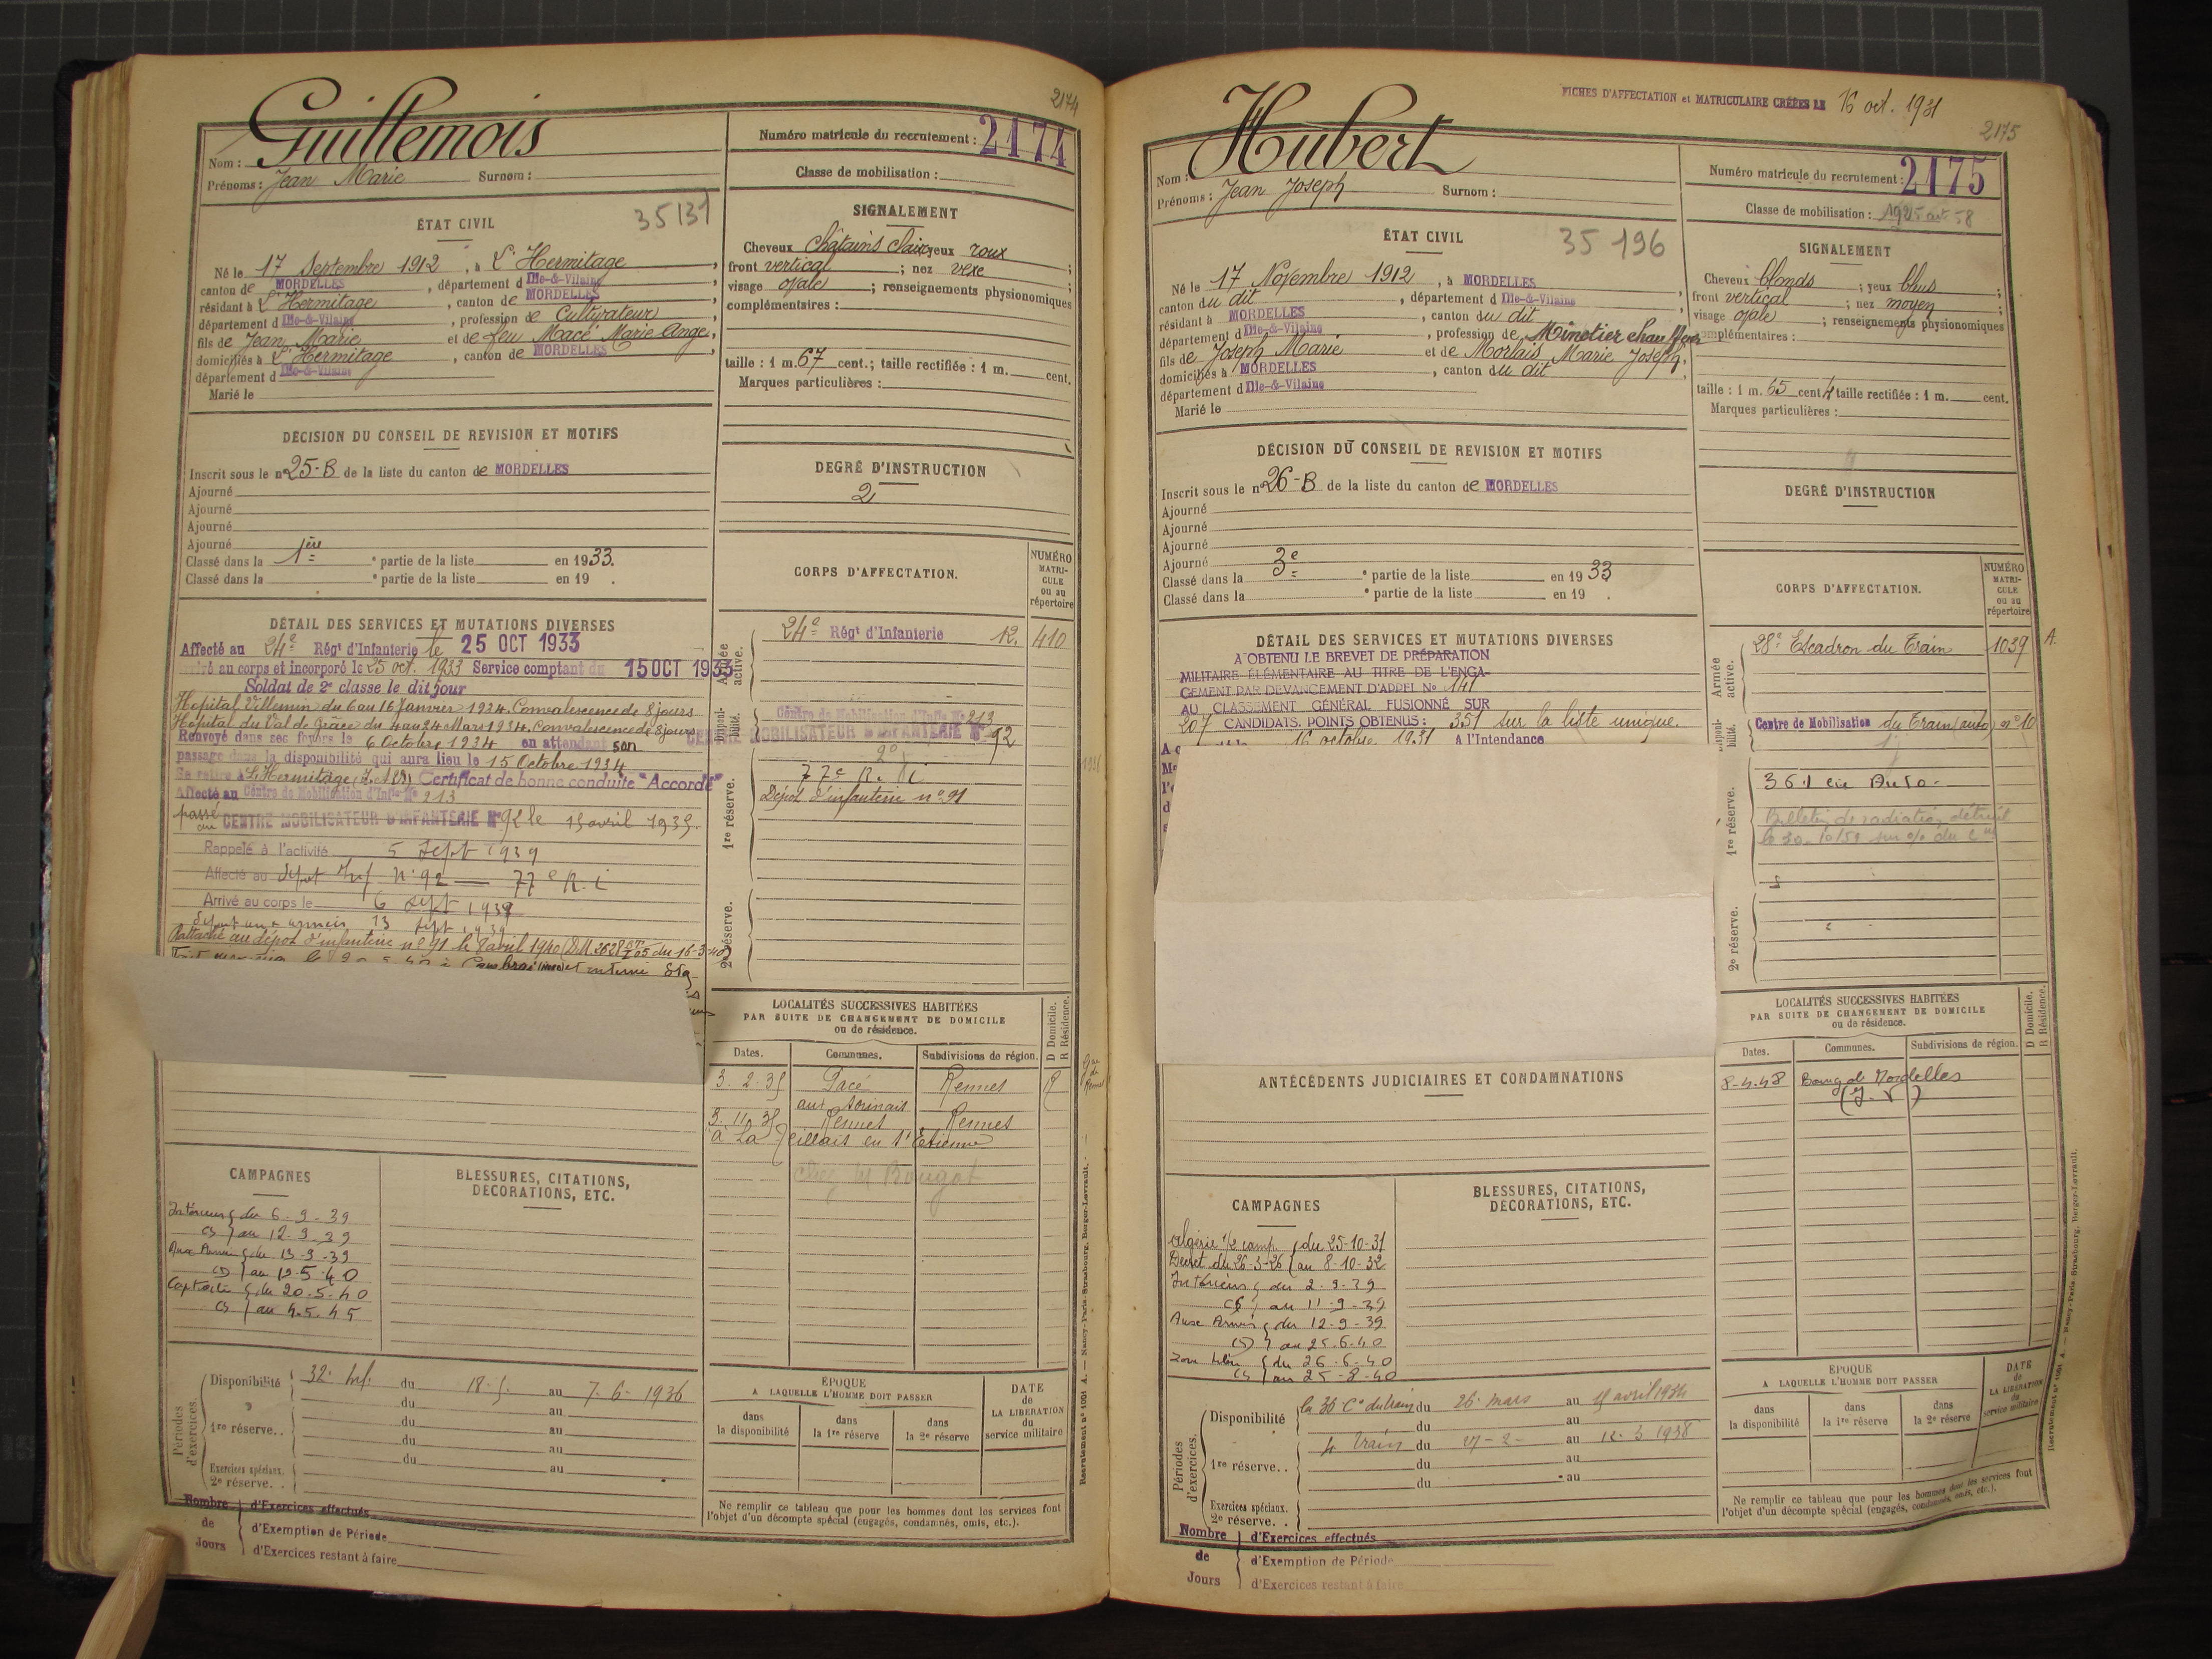 2174
Guillemois
Nom :
Prénoms : Jean Marie Surnom :
Numéro matricule du recrutement : 2174
Classe de mobilisation :
ÉTAT CIVIL
35131
Né le 17 Septembre 1912, à L'Hermitage,
canton de MORDELLES, département d Ille-&-Vilaine,
résidant à L'Hermitage, canton de MORDELLES,
département d Ille-&-Vilaine, profession de Cultivateur,
fils de Jean Marie et de feu Macé Marie Ange,
domiciliés à L'Hermitage, canton de MORDELLES,
département d Ille-&-Vilaine
Marié le
SIGNALEMENT
Cheveux châtains clairs yeux roux ;
front vertical ; nez vexe ;
visage ovale ; renseignements physionomiques
complémentaires :
taille : 1 m. 67 cent.; taille rectifiée : 1 m. cent.
Marques particulières :
DÉCISION DU CONSEIL DE REVISION ET MOTIFS
Inscrit sous le n° 25-B de la liste du canton de MORDELLES
Ajourné
Ajourné
Ajourné
Ajourné
Classé dans la 1ère e partie de la liste en 1933.
Classé dans la e partie de la liste en 19 .
DEGRÉ D'INSTRUCTION
2
CORPS D'AFFECTATION.
NUMÉRO
MATRI-
CULE
ou au
répertoire
DÉTAIL DES SERVICES ET MUTATIONS DIVERSES
Affecté au 24e Régt d'Infanterie le 25 OCT 1933
Arrivé au corps et incorporé le 25 oct. 1933 Service comptant du 15 OCT 1933
Soldat de 2e classe le dit jour
Hopital Villemin du 6 au 16 Janvier 1934. Convalescence de 8 jours
Hopital du Val de Grâce du 4 au 24 Mars 1934. Convalescence de 8 jours
Renvoyé dans ses foyers le 6 Octobre 1934 en attendant son
passage dans la disponibilité qui aura lieu le 15 Octobre 1934
Se retire à L'Hermitage (I. et V.) Certificat de bonne conduite "Accordé"
Affecté au Centre de Mobilisation d'Infie N° 213
passé au CENTRE MOBILISATEUR D'INFANTERIE N° 92 le 15 avril 1935.
Rappelé à l'activité 5 Sept 1939
Affecté au dépot Inf n° 92 — 77e R. I
Arrivé au corps le 6 sept 1939
Départ aux armées 13 sept 1939
Rattaché au dépot d'infanterie n° 91 le 8 avril 1940
et interné
Armée active.
24e Régt d'Infanterie 12. 410
Disponi-
bilité.
Centre de Mobilisation d'Infie N° 213
CENTRE MOBILISATEUR D'INFANTERIE N° 92
1re réserve.
77e R. I
Dépot d'infanterie n° 91
2e réserve.
LOCALITÉS SUCCESSIVES HABITÉES
PAR SUITE DE CHANGEMENT DE DOMICILE
ou de résidence.
D Domicile.
R Résidence.
Dates. Communes. Subdivisions de région.
3. 2. 35 Pacé Rennes R
3. 11. 35 Rennes Rennes
en St Etienne
chez Bougot
CAMPAGNES
Intérieur du 6-9-39
CS au 12-9-39
Aux Armées du 13-9-39
CD au 19-5-40
Captivité du 20-5-40
CS au 4-5-45
BLESSURES, CITATIONS,
DÉCORATIONS, ETC.
Périodes d'exercices.
Disponibilité 32e Inf. du 18-5. au 7-6-1936
du au
1re réserve. . du au
du au
du au
Exercices spéciaux.
2e réserve. .
ÉPOQUE
A LAQUELLE L'HOMME DOIT PASSER
DATE
de
LA LIBÉRATION
du
service militaire
dans
la disponibilité
dans
la 1re réserve
dans
la 2e réserve
Ne remplir ce tableau que pour les hommes dont les services font
l'objet d'un décompte spécial (engagés, condamnés, omis, etc.).
Nombre
de
Jours
d'Exercices effectués
d'Exemption de Période
d'Exercices restant à faire
Recrutement n° 1051 A. — Nancy-Paris-Strasbourg, Berger-Levrault.
FICHES D'AFFECTATION et MATRICULAIRE CRÉÉES LE 16 oct. 1931
2175
Hubert
Nom :
Prénoms : Jean Joseph Surnom :
Numéro matricule du recrutement : 2175
Classe de mobilisation :
ÉTAT CIVIL
35 196
Né le 17 Novembre 1912, à MORDELLES
canton du dit, département d Ille-&-Vilaine,
résidant à MORDELLES, canton du dit
département d Ille-&-Vilaine, profession de Minotier chauffeur
fils de Joseph Marie et de Morlais Marie Joseph,
domiciliés à MORDELLES, canton du dit
département d Ille-&-Vilaine
Marié le
SIGNALEMENT
Cheveux blonds ; yeux bleus ;
front vertical ; nez moyen ;
visage ovale ; renseignements physionomiques
complémentaires :
taille : 1 m. 65 cent 4 taille rectifiée : 1 m. cent.
Marques particulières :
DÉCISION DU CONSEIL DE REVISION ET MOTIFS
Inscrit sous le n° 26-B de la liste du canton de MORDELLES
Ajourné
Ajourné
Ajourné
Ajourné
Classé dans la 3e e partie de la liste en 1933
Classé dans la e partie de la liste en 19 .
DEGRÉ D'INSTRUCTION
CORPS D'AFFECTATION.
NUMÉRO
MATRI-
CULE
ou au
répertoire
DÉTAIL DES SERVICES ET MUTATIONS DIVERSES
A OBTENU LE BREVET DE PRÉPARATION
MILITAIRE ÉLÉMENTAIRE AU TITRE DE L'ENGA-
GEMENT PAR DEVANCEMENT D'APPEL N° 141
AU CLASSEMENT GÉNÉRAL FUSIONNÉ SUR
207 CANDIDATS. POINTS OBTENUS : 351 sur la liste unique.
16 octobre. 1931 A l'Intendance
Armée active.
28e Escadron du Train 1039 A.
Disponi-
bilité.
Centre de Mobilisation du Train (auto) n° 10
1re réserve.
361 cie Auto.
Bulletin de radiation détruit
2e réserve.
LOCALITÉS SUCCESSIVES HABITÉES
PAR SUITE DE CHANGEMENT DE DOMICILE
ou de résidence.
D Domicile.
R Résidence.
Dates. Communes. Subdivisions de région.
8-4-48 Bourg de Mordelles
(I. V)
ANTÉCÉDENTS JUDICIAIRES ET CONDAMNATIONS
CAMPAGNES
Algérie 1/2 camp du 25-10-31
Décret du 26-3-26 au 8-10-32
Intérieur du 2-9-39
CS au 11-9-39
Aux Armées du 12-9-39
CD au 25-6-40
Zone libre du 26-6-40
CS au 25-8-40
BLESSURES, CITATIONS,
DÉCORATIONS, ETC.
Périodes d'exercices.
Disponibilité la 36 Cie du train du 26 mars au 15 avril 1934
du au
1re réserve. . 4 Train du 27-2- au 12-3 1938
du au
du au
Exercices spéciaux.
2e réserve. .
ÉPOQUE
A LAQUELLE L'HOMME DOIT PASSER
DATE
de
LA LIBÉRATION
du
service militaire
dans
la disponibilité
dans
la 1re réserve
dans
la 2e réserve
Ne remplir ce tableau que pour les hommes dont les services font
l'objet d'un décompte spécial (engagés, condamnés, omis, etc.).
Nombre
de
Jours
d'Exercices effectués
d'Exemption de Période
d'Exercices restant à faire
Recrutement n° 1051 A. — Nancy-Paris-Strasbourg, Berger-Levrault.